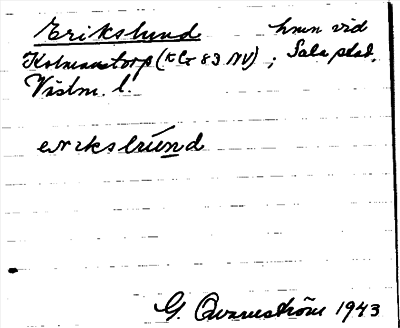 Erikslund hmn vid
Kolmanstorp (KG 83 NV); Sala stad,
Västm. l.
erikslúnd
G. Qvarnström 1943